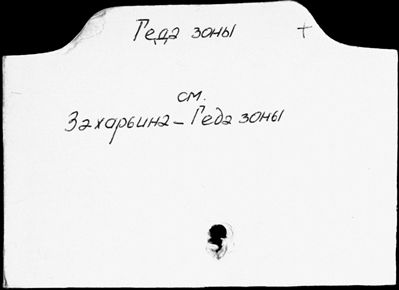 Геда зоны +
см.
Захарьина-Геда зоны